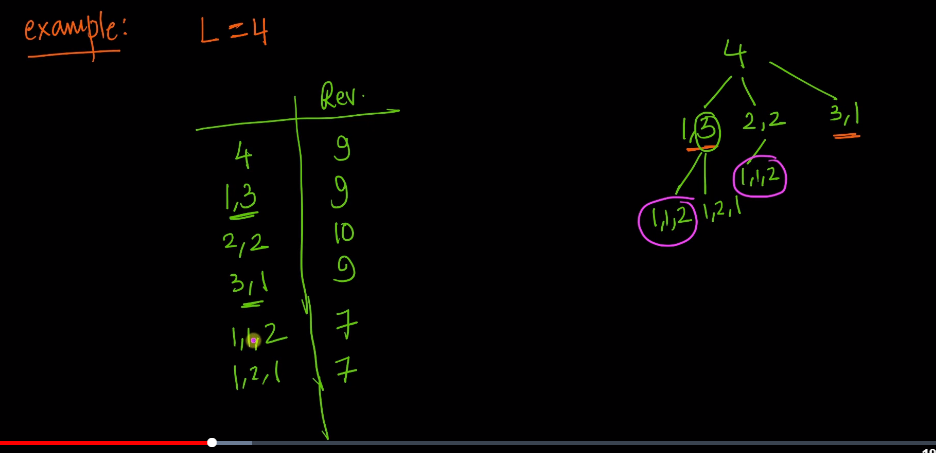 example: L = 4
Rev.
4 9
1,3 9
2,2 10
3,1 9
1,1,2 7
1,2,1 7
4
1,3 2,2 3,1
1,1,2
1,1,2 1,2,1